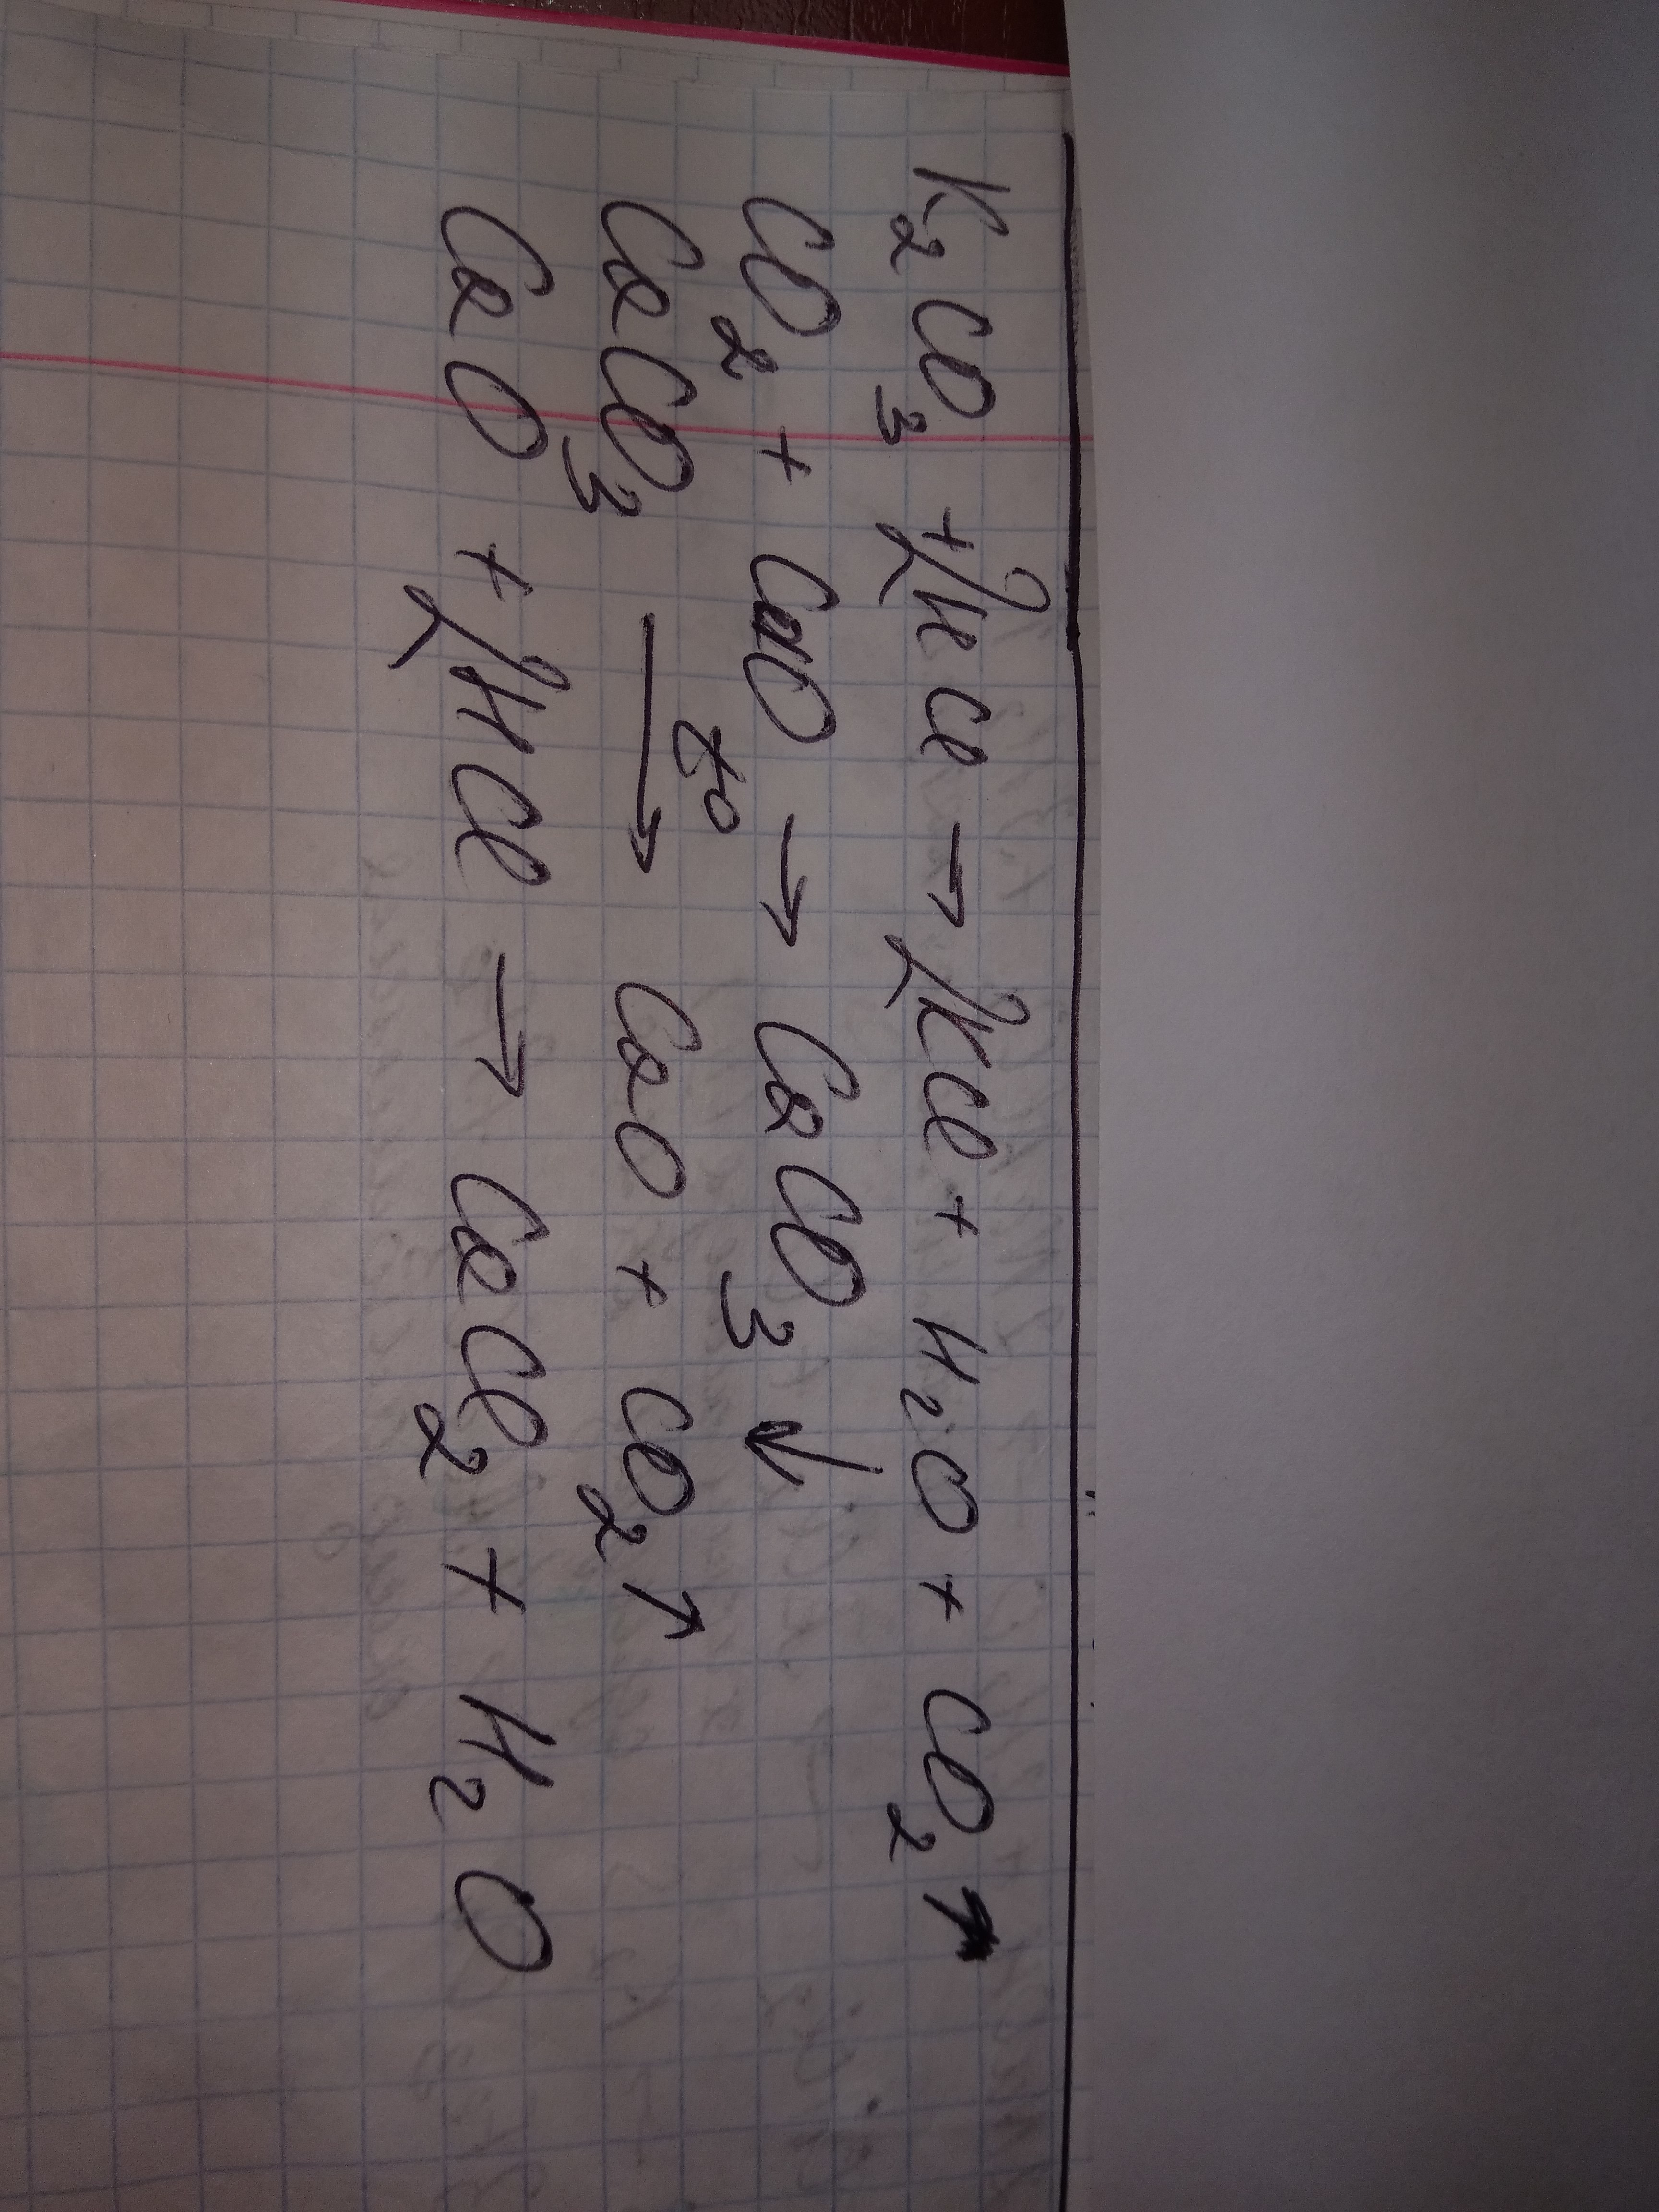 K₂CO₃ + 2HCl → 2KCl + H₂O + CO₂↑
CO₂ + CaO → CaCO₃↓
CaCO₃ →t° CaO + CO₂↑
CaO + 2HCl → CaCl₂ + H₂O